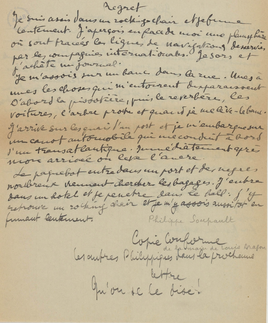 Regret
Je suis assis dans un rocking chair et je fume
lentement. J'aperçois en face de moi une planisphère
où sont tracées les lignes de navigations desservies
par les compagnies internationales. Je sors et
j'achète un journal.
Je m'assois sur un banc dans la rue. Unes à
unes les choses qui m'entourent disparaissent
D'abord la pissotière, puis le réverbère, les
voitures, l'arbre protu et quand je me lève
J'arrive sur les quais d'un port et je m'embarque
un canot automobile qui me conduit à bord
d'un transatlantique. Immédiatement après
mon arrivée on lève l'ancre
Le paquebot entre dans un port et des nègres
nombreux viennent chercher les bagages. J'entre
dans un hôtel et je pénètre dans le hall. J'y
retrouve un rocking chair et je m'assois aussitôt en
fumant lentement.
Philippe Soupault
Copie Conforme
les autres Philippiques dans la prochaine
lettre
Qu'on se le dise!